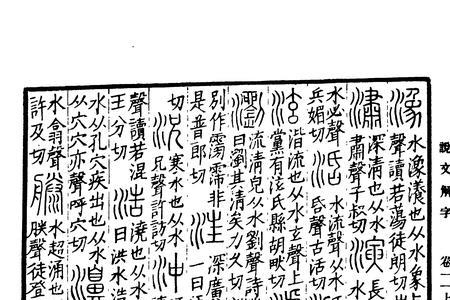 潒水潒瀁也从水象
聲讀若蕩徒朗切
潚深清也从水
肅聲子叔切
演長
水必聲
兵媚切
活水流聲从水
𠯑聲古活切
玄湝流也从水玄聲上
黨有泫氏縣胡畎切
瀏流清皃从水劉聲詩
曰瀏其清矣力久切
別作霶霈非
是普郎切
汪深廣
一曰
切
況寒水也从水
兄聲許訪切
沖
聲讀若混
王分切
浩澆也从水
曰洪水浩
水从孔穴疾出也从水
从穴穴亦聲呼穴切
水翕聲
許及切
滕水超涌也
朕聲徒登
說文解字 卷